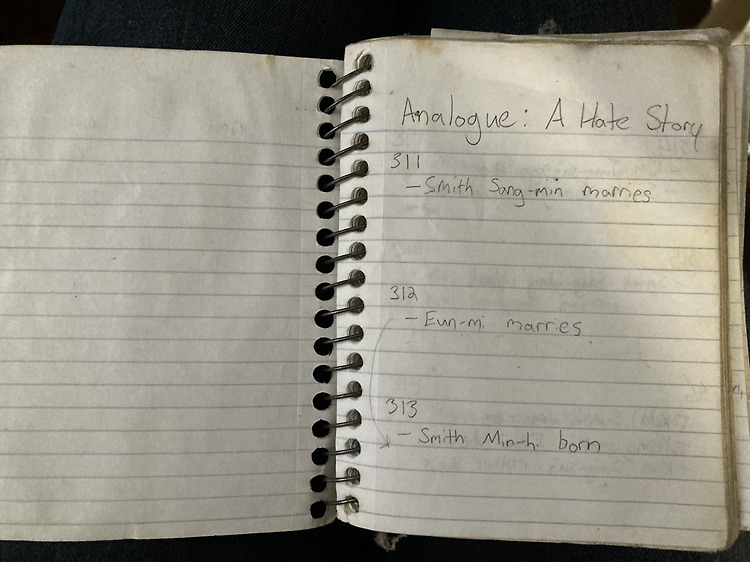 Analogue: A Hate Story
311
- Smith Sang-min marries
312
- Eun-mi marries
313
- Smith Min-hi born